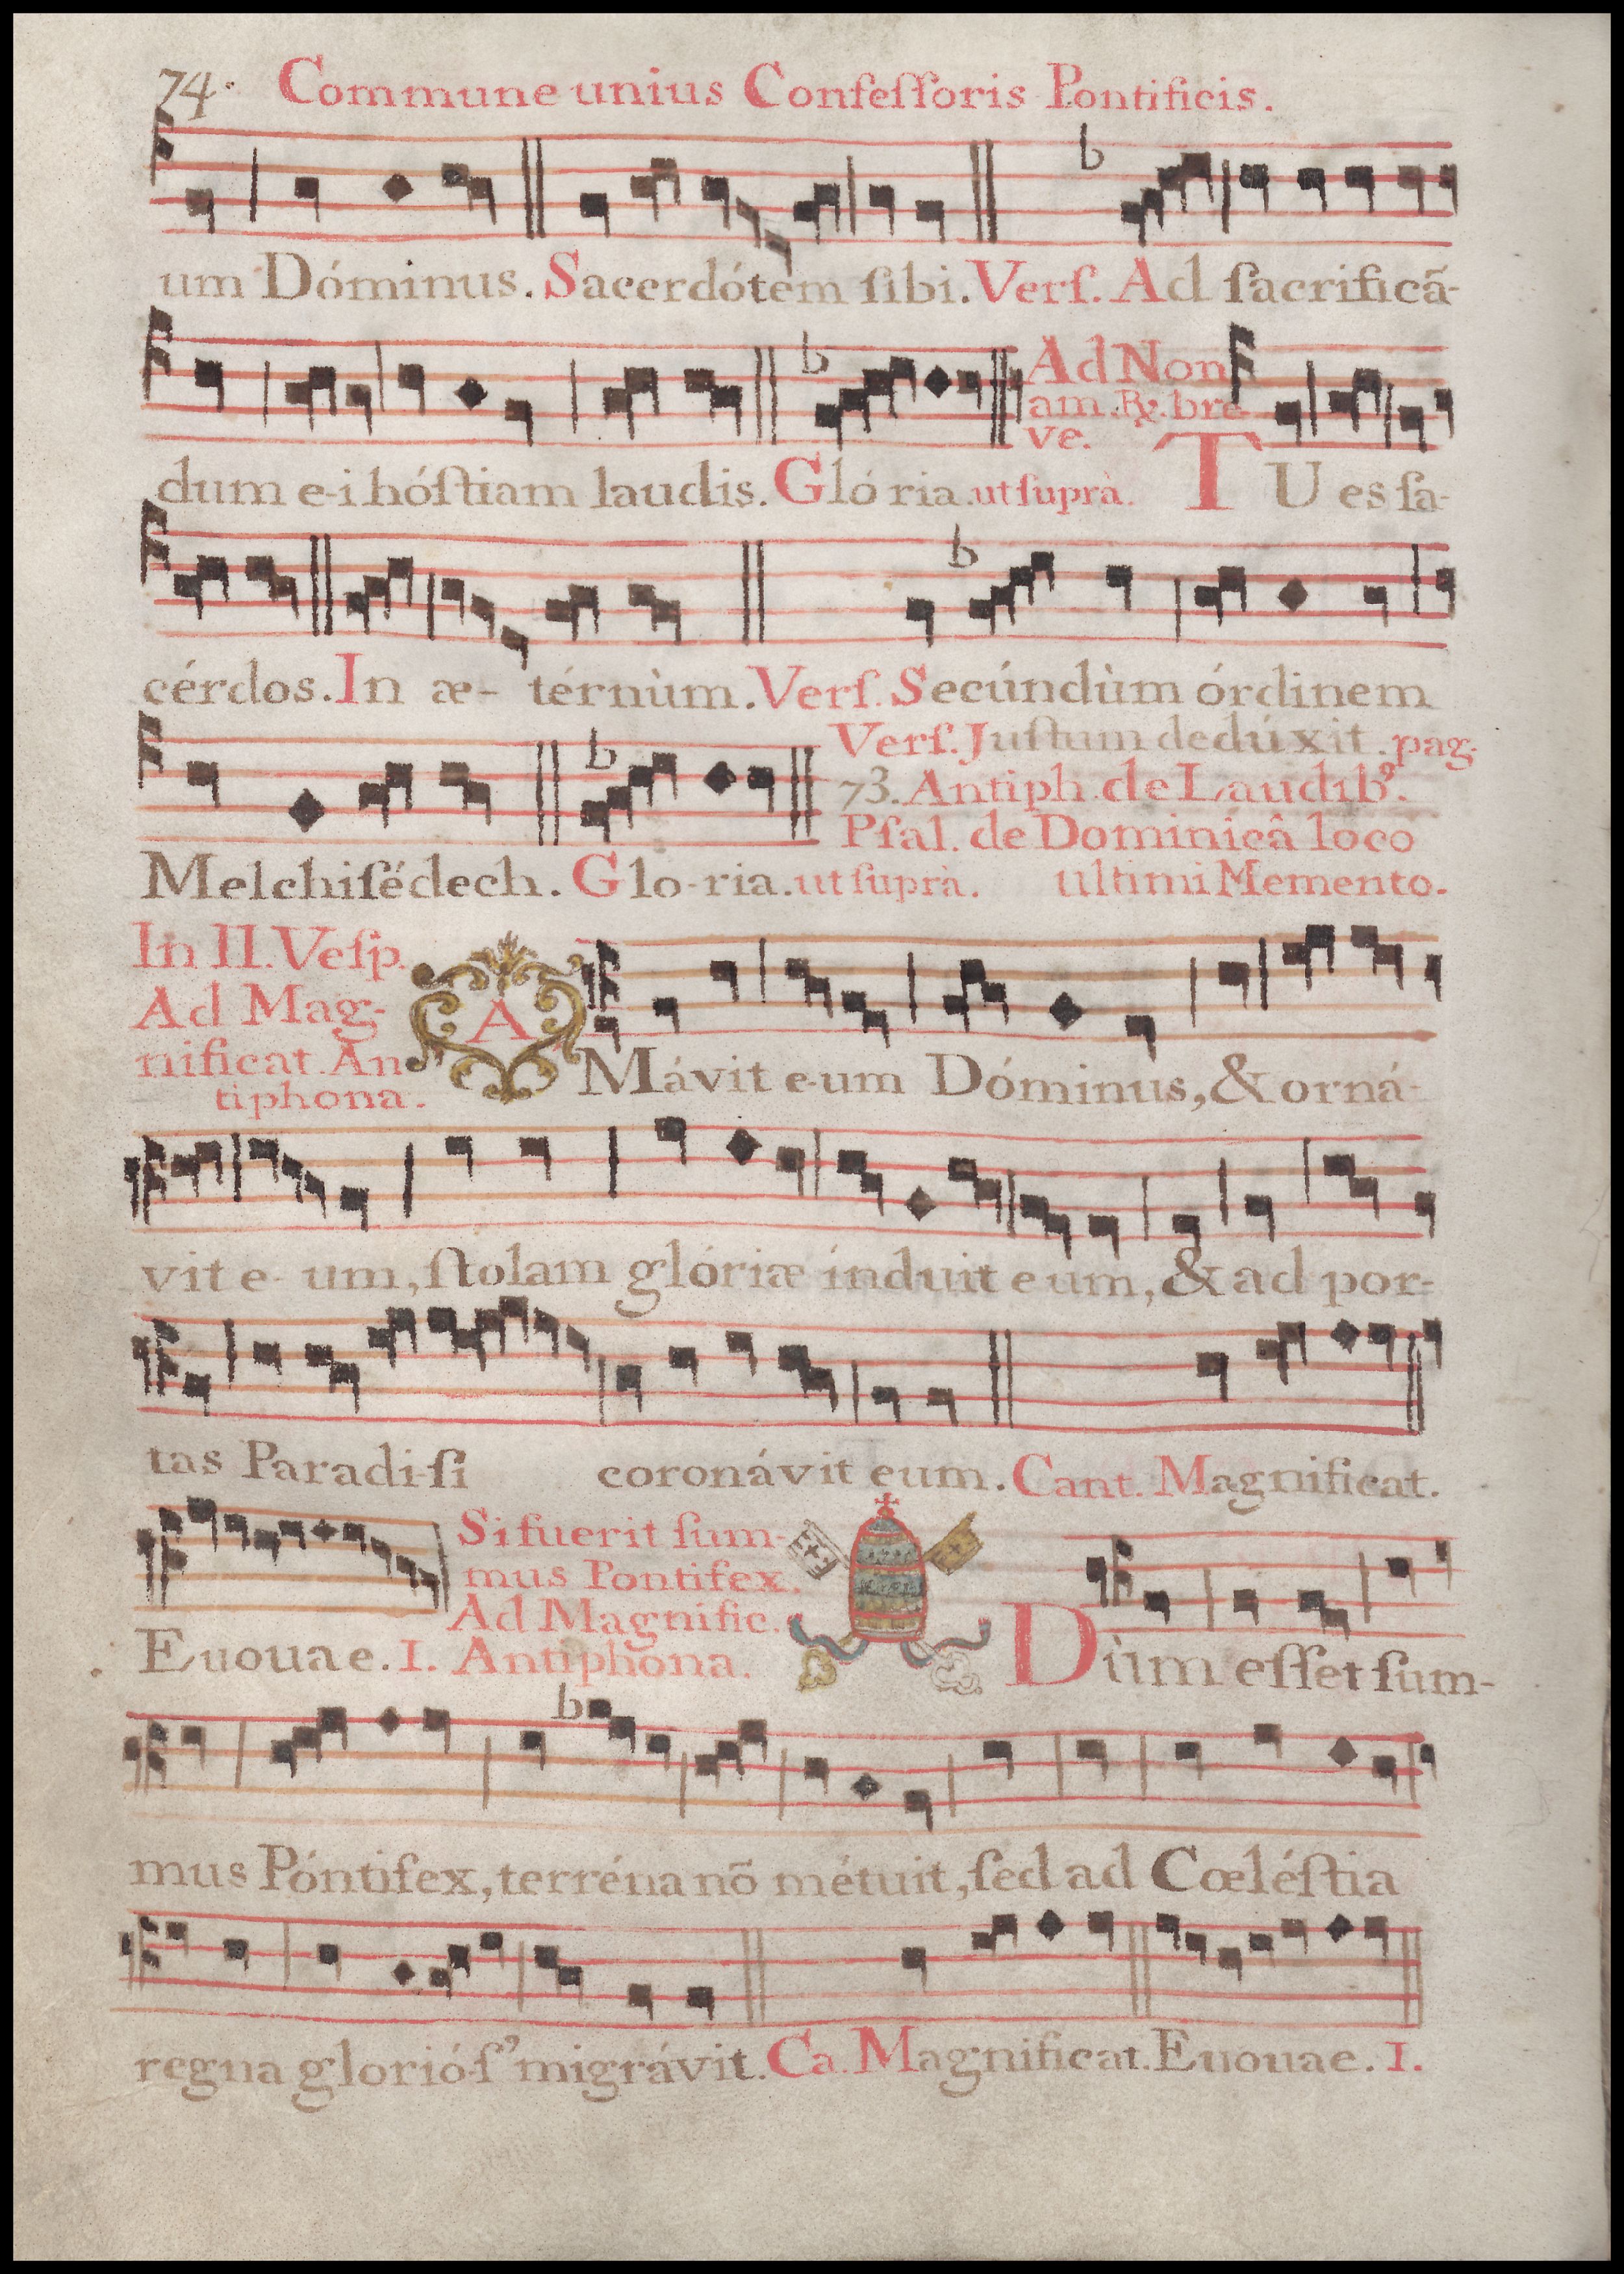 74. Commune unius Confeſſoris Pontificis.
um Dóminus. Sacerdótem ſibi. Verſ. Ad ſacrificã-
Ad Non-
am. ℟. bre
ve.
dum e-i hóſtiam laudis. Glória. ut ſuprà. TU es ſa-
cérdos. In æ- térnùm. Verſ. Secúndùm órdinem
Verſ. Juſtum dedúxit. pag.
73. Antiph. de Laudib⁹.
Pſal. de Dominicâ loco
ultimi Memento.
Melchiſédech. Glo-ria. ut ſuprà.
In II. Veſp.
Ad Mag-
nificat. An
tiphona.
AMávit e-um Dóminus, & orná-
vit e- um, ſtolam glóriæ índuit eum, & ad por-
tas Paradi-ſi coronávit eum. Cant. Magnificat.
Si fuerit ſum-
mus Pontifex.
Ad Magnific.
Antiphona.
Euouae. I. Dùm eſſet ſum-
mus Póntifex, terréna nõ métuit, ſed ad Cœléſtia
regna glorió-ſ’ migrávit. Ca. Magnificat. Euouae. I.